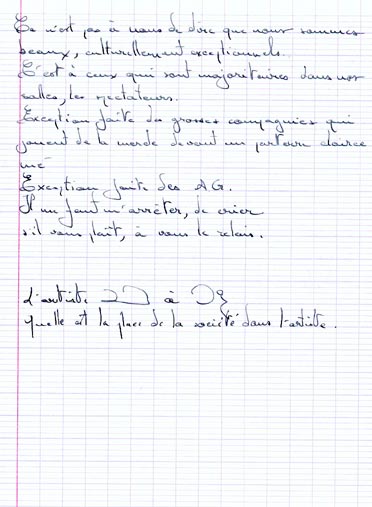 Ce n'est pas à nous de dire que nous sommes
beaux, culturellement exceptionnels.
C'est à ceux qui sont majoritaires dans nos
salles, les spectateurs.
Exception faite des grosses compagnies qui
jouent de la merde devant un parterre clairse
mé
Exception faite des AG.
Il me faut m'arrêter, de crier
s'il vous plaît, à vous le relais.
L'artiste à
quelle est la place de la société dans l'artiste.